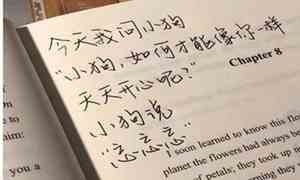 今天我问小狗
"小狗,如何才能像你一样
天天开心呢?"
小狗说
"忘忘忘"
Chapter 8
soon learned to know this flow
planet the flowers had always b
of petals; they took up no
morning they
you a